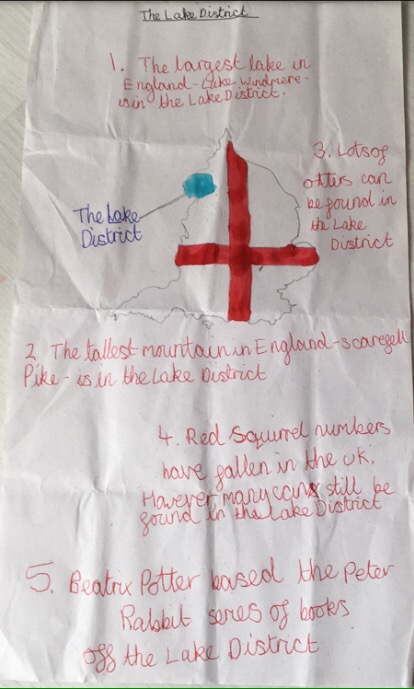 The Lake District
1. The largest lake in
England - Lake Windmere -
is in the Lake District.
3. Lots of
otters can
be found in
the Lake
District
The Lake
District
2. The tallest mountain in England - scaregell
Pike - is in the Lake District
4. Red Squirrel numbers
have fallen in the UK.
However many can still be
found in the Lake District
5. Beatrix Potter based the Peter
Rabbit series of books
off the Lake District